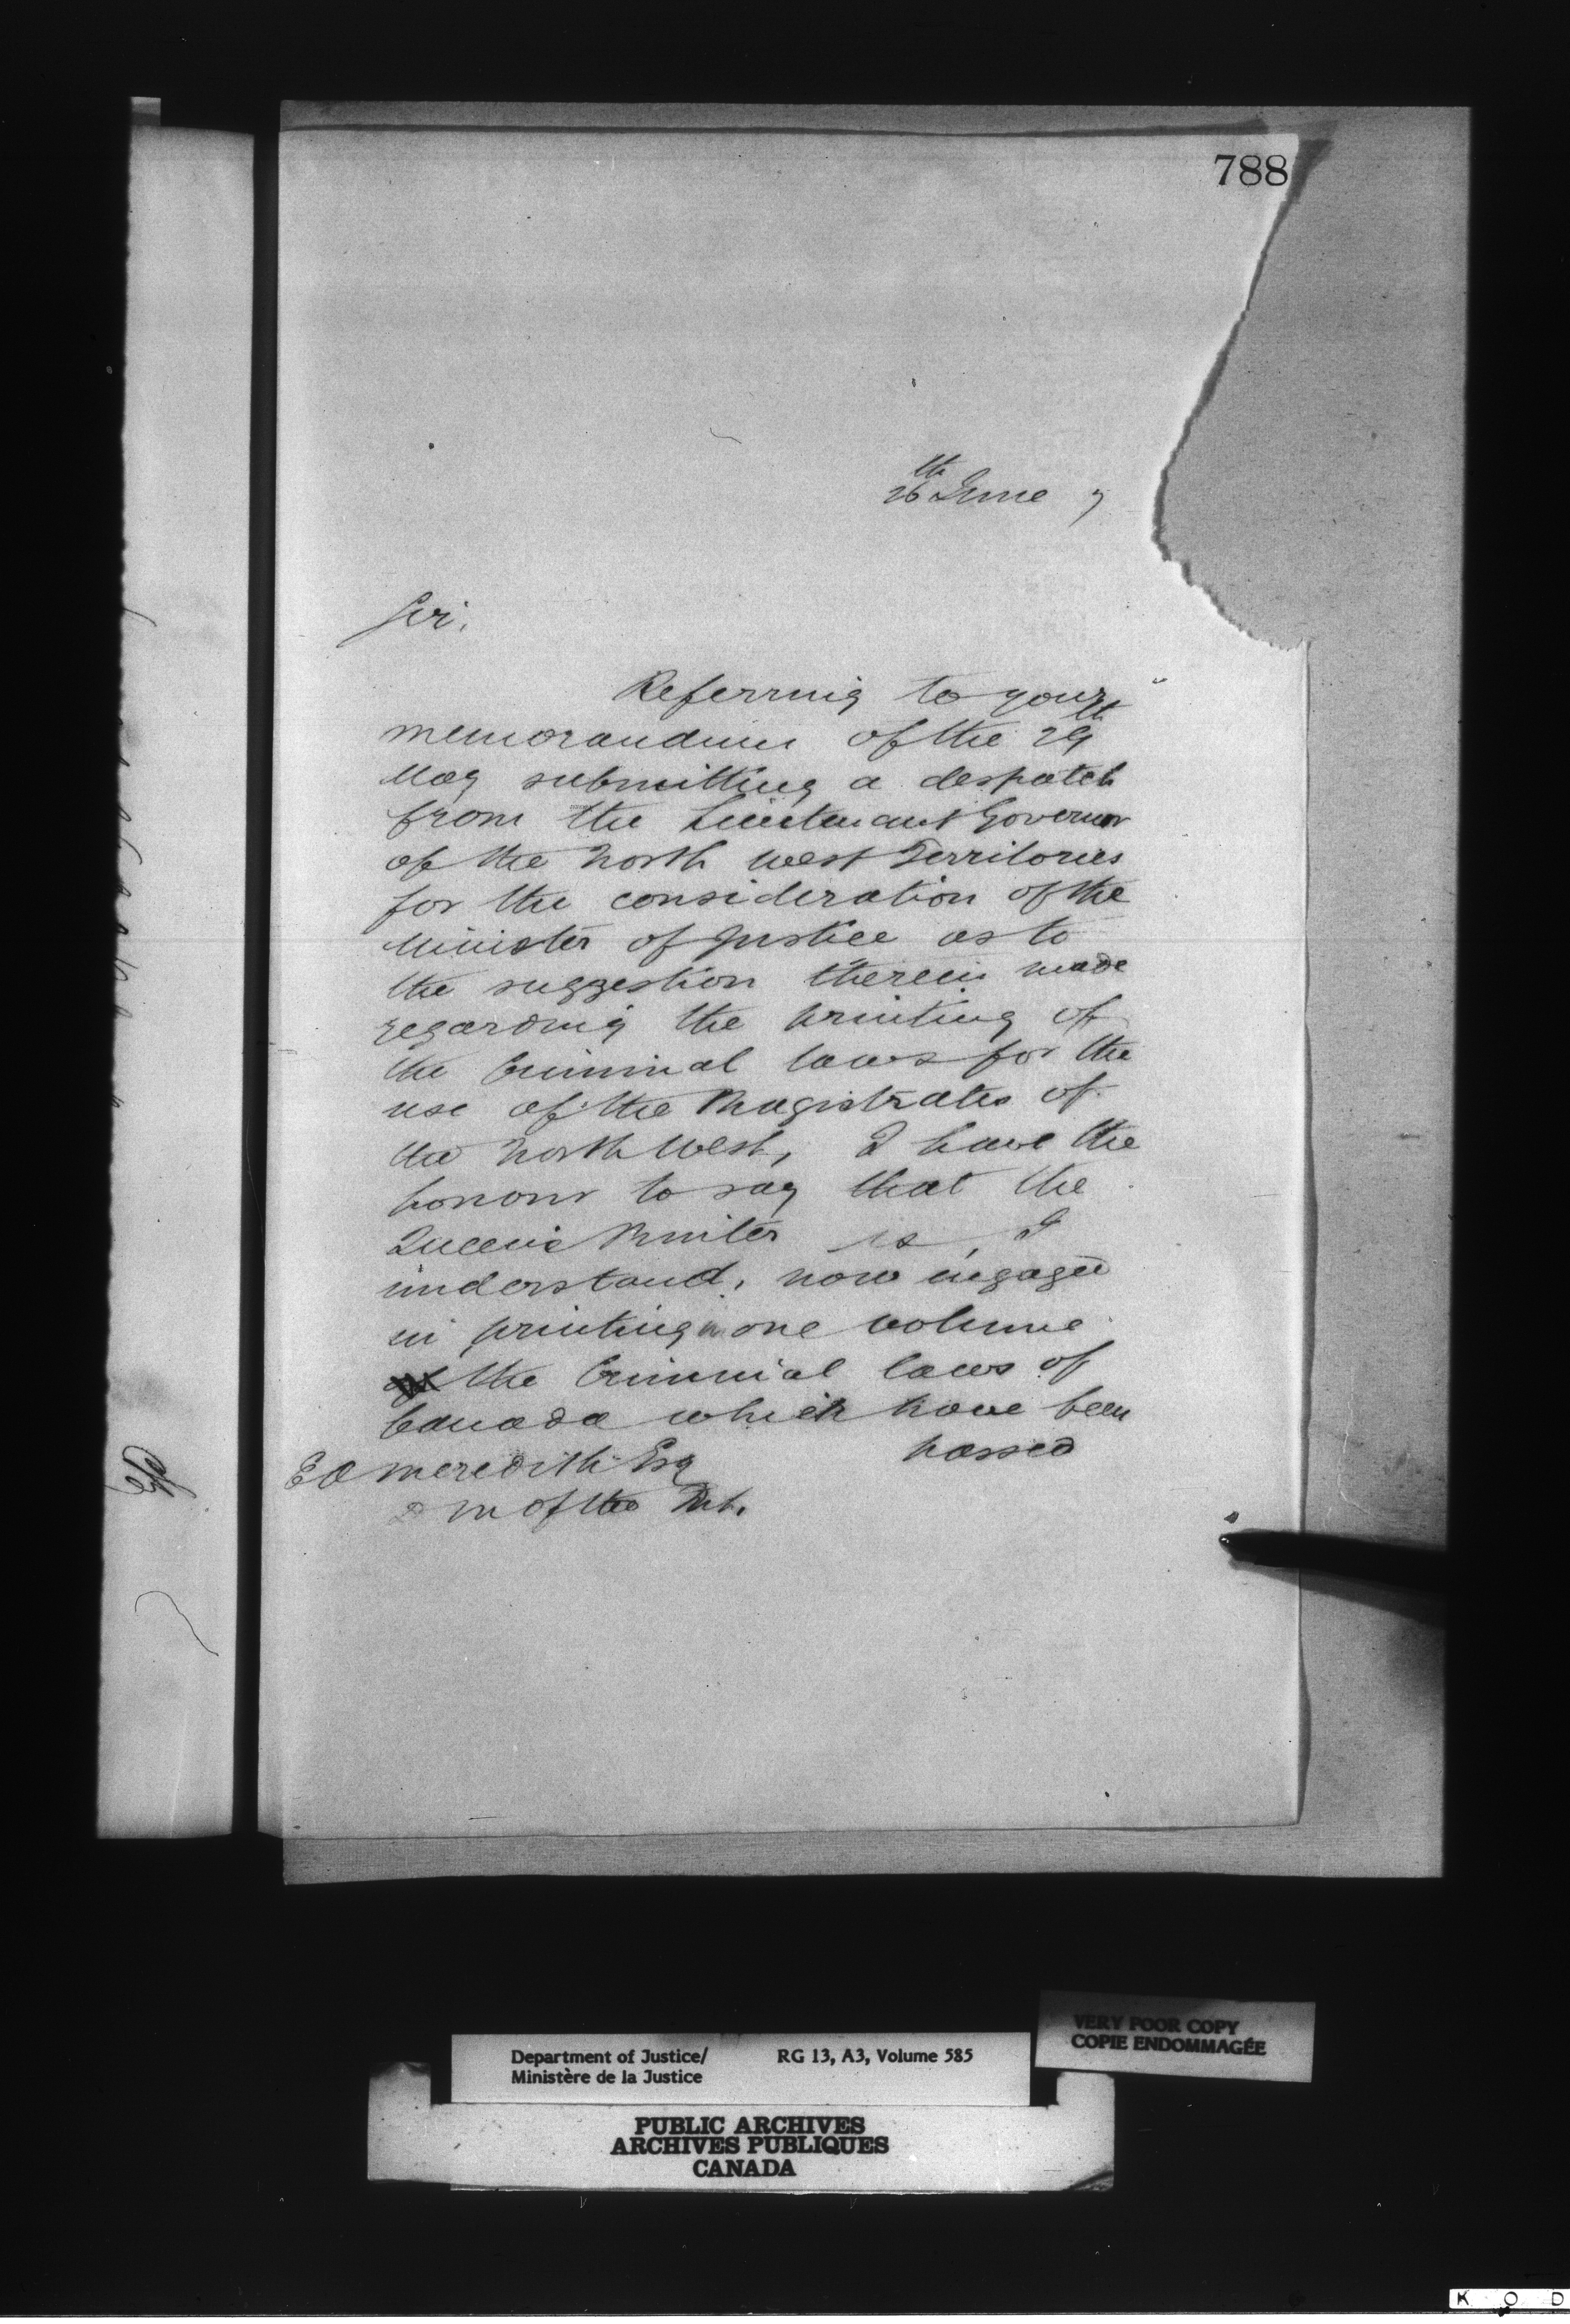 788
26th June 7
Sir,
Referring to your
memorandum of the 29th
May submitting a despatch
from the Lieutenant Governor
of the North West Territories
for the consideration of the
Minister of Justice as to
the suggestion therein made
regarding the printing of
the Criminal laws for the
use of the Magistrates of
the North West, I have the
honour to say that the
Queen's Printer is, I
understand, now engaged
in printing in one volume
the Criminal laws of
Canada which have been
passed
E A Meredith Esq
D M of the Int.
VERY POOR COPY
COPIE ENDOMMAGÉE
Department of Justice/ RG 13, A3, Volume 585
Ministère de la Justice
PUBLIC ARCHIVES
ARCHIVES PUBLIQUES
CANADA
K O D